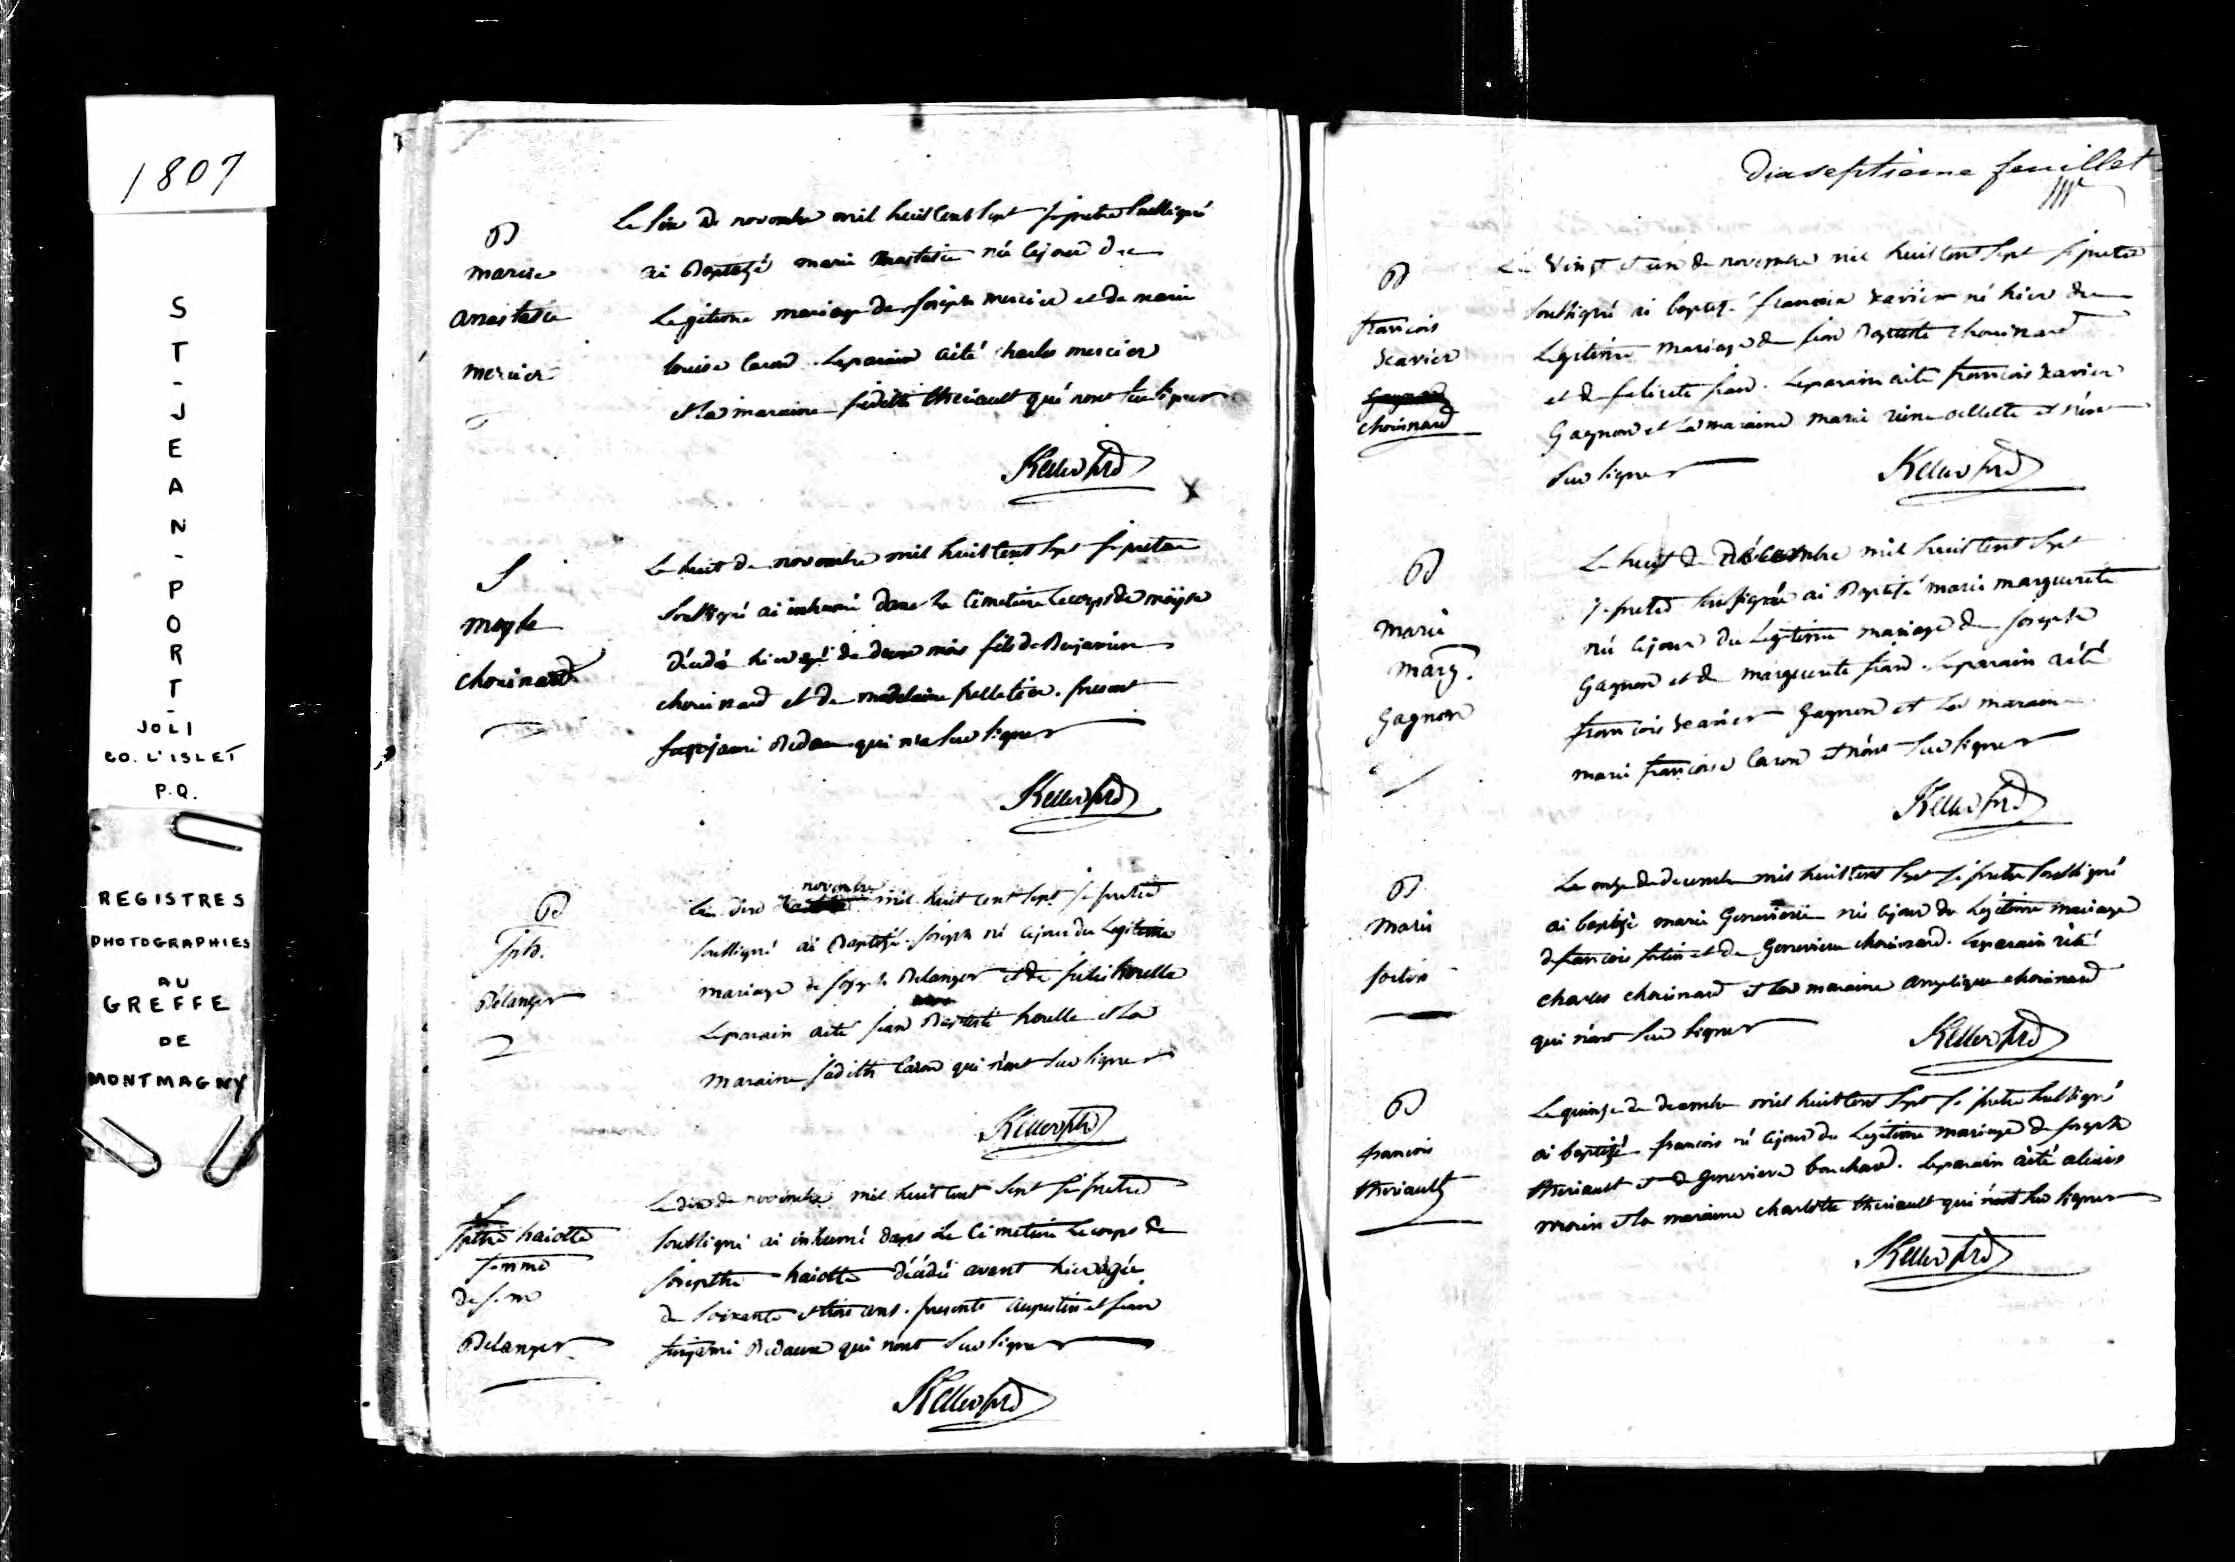 1807
ST-JEAN-PORT-
JOLI
CO. L'ISLET
P.Q.
REGISTRES
PHOTOGRAPHIES
AU
GREFFE
DE
MONTMAGNY
B
marie
anastasie
mercier
Le six de novembre mil huit cent sept je pretre soussigné
ai Baptizé marie anastasie née le jour du
Legitime mariage de joseph mercier et de marie
louise Caron. Le parain a été charles mercier
et la maraine judith theriault qui n'ont su signer
Keller ptre
S
moyse
chouinard
Le huit de novembre mil huit cent sept je pretre
soussigné ai inhumé dans le Cimetiere le corps de moÿse
décédé hier agé de deux mois fils de Benjamin
chouinard et de madelaine pelletier. present
qui n'a su signer
Keller ptre
B
Jph.
Belanger
Le dix novembre mil huit cent sept je pretre
soussigné ai Baptizé joseph né ce jour du Legitime
mariage de joseph Belanger et de
Le parain a été jean Baptiste et la
maraine judith Caron qui n'ont su signer
Keller ptre
S
haiotte
femme
de
Belanger
Le dix de novembre mil huit cent sept je pretre
soussigné ai inhumé dans le Cimetiere le corps de
josepthe haiotte décédée avant hier agée
de soixante et trois ans. presents augustin et jean
qui n'ont su signer
Keller ptre
Dixseptieme feuillet
B
francois
Xavier
chouinard
Le vingt et un de novembre mil huit cent sept je pretre
soussigné ai baptizé francois xavier né hier du
Legitime mariage de jean Baptiste chouinard
et de felicité. Le parain a été francois xavier
Gagnon et la maraine marie ouellette et n'ont
su signer Keller ptre
B
marie
marg.
Gagnon
Le huit de décembre mil huit cent sept
je pretre soussigné ai Baptisé marie marguerite
née ce jour du Legitime mariage de joseph
Gagnon et de marguerite. Le parain a été
francois xavier Gagnon et la maraine
marie francoise Caron et n'ont su signer
Keller ptre
B
marie
fortin
Le onze de decembre mil huit cent sept je pretre soussigné
ai baptizé marie Genevieve née ce jour du Legitime mariage
de francois fortin et de Genevieve chouinard. Le parain a été
charles chouinard et la maraine angelique chouinard
qui n'ont su signer Keller ptre
B
francois
theriault
Le quinze de decembre mil huit cent sept je pretre soussigné
ai baptizé francois né ce jour du Legitime mariage de joseph
theriault et de Genevieve bouchard. Le parain a été alexis
morin et la maraine charlotte theriault qui n'ont su signer
Keller ptre